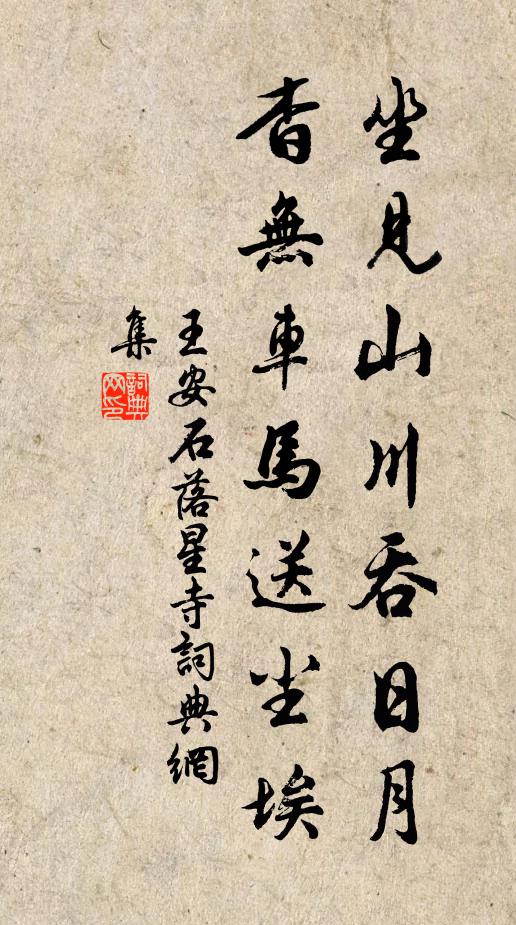 坐見山川吞日月
杳無車馬送尘埃
王安石落星寺詞典網
集
詞典
网印